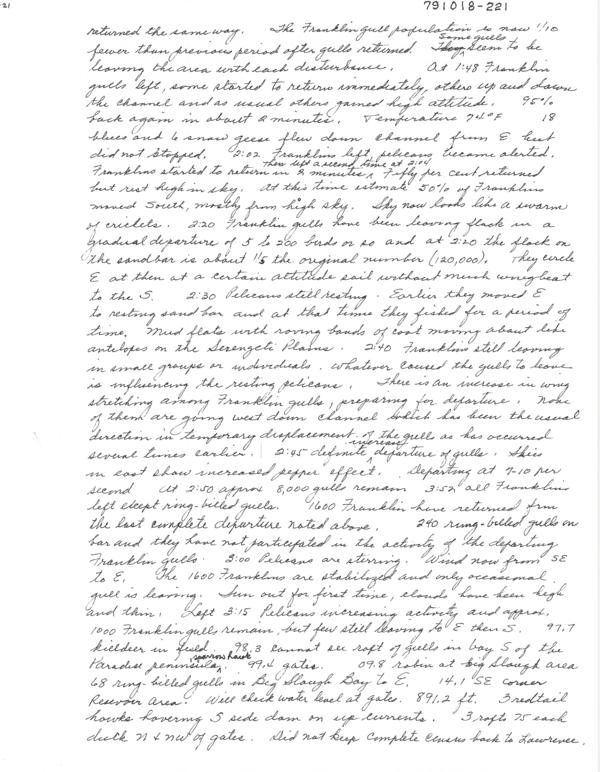 21
791018-221
returned the same way. The Franklin gull population is now 1/10
fewer than previous period after gulls returned. Some gulls seem to be
leaving the area with each disturbance. At 1:48 Franklin
gulls left, some started to return immediately, others up and down
the channel and as usual others gained high attitude. 95%
back again in about 2 minutes. Temperature 74°F 18
blues and 6 snow geese flew down channel from E but
did not stopped. 2:02 Franklins left, pelicans became alerted.
They left a second time at 2:04
Franklins started to return in 2 minutes. Fifty per cent returned
but rest high in sky. At this time estimate 50% of Franklins
moved South, mostly from high sky. Sky now looks like a swarm
of crickets. 2:20 Franklin gulls have been leaving flock in a
gradual departure of 5 to 200 birds or so and at 2:20 the flock on
the sandbar is about 1/5 the original number (120,000). They circle
E at then at a certain attitude sail without much wingbeat
to the S. 2:30 Pelicans still resting. Earlier they moved E
to resting sand bar and at that time they fished for a period of
time. Mud flats with roving bands of coot moving about like
antelopes on the Serengeti Plains. 2:40 Franklins still leaving
in small groups or individuals. Whatever caused the gulls to leave
is influencing the resting pelicans. There is an increase in wing
stretching among Franklin gulls, preparing for departure. None
of them are going west down channel which has been the usual
direction in temporary displacement of the gulls as has occurred
several times earlier. 2:45 definite increase departure of gulls. Skies
in east show increased pepper effect. Departing at 7-10 per
second At 2:50 approx 8,000 gulls remain 3:52 all Franklins
left except ring-billed gulls. 1600 Franklin have returned from
the last complete departure noted above. 240 ring-billed gulls on
bar and they have not participated in the activity of the departing
Franklin gulls. 3:00 Pelicans are stirring. Wind now from SE
to E. The 1600 Franklins are stabilized and only occasional
gull is leaving. Sun out for first time, clouds have been high
and thin. Left 3:15 Pelicans increasing activity and approx.
1000 Franklin gulls remain, but few still leaving to E then S. 97.7
killdeer in field 98.3 cannot see raft of gulls in bay S of the
Paradise peninsula, sparrow hawk 99.4 gates. 09.8 robin at Big Slough area
68 ring-billed gulls in Big Slough Bay to E. 14.1 SE corner
Resevoir Area. Will check water level at gates. 891.2 ft. 3 redtail
hawks hovering S side dam on up currents. 3 rafts 75 each
duck N & NW of gates. Did not keep complete census back to Lawrence.